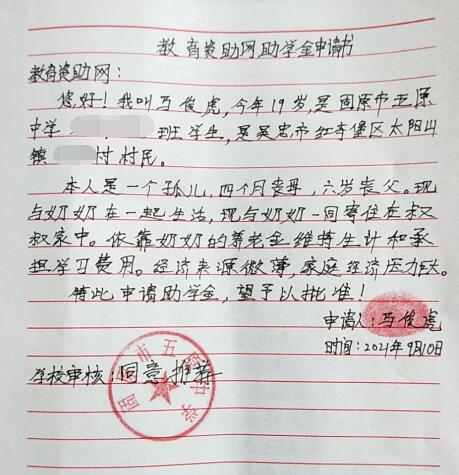 教育资助网助学金申请书
教育资助网：
您好！我叫马俊虎，今年19岁，是固原市五原
中学 班学生，是吴忠市红寺堡区太阳山
镇 村村民。
本人是一个孤儿，四个月丧母，六岁丧父。现
与奶奶在一起生活，现与奶奶一同寄住在叔
叔家中。依靠奶奶的养老金维持生计和承
担学习费用。经济来源微薄，家庭经济压力大。
特此申请助学金，望予以批准！
申请人：马俊虎
时间：2021年9月10日
学校审核：同意推荐
固 市五原中学